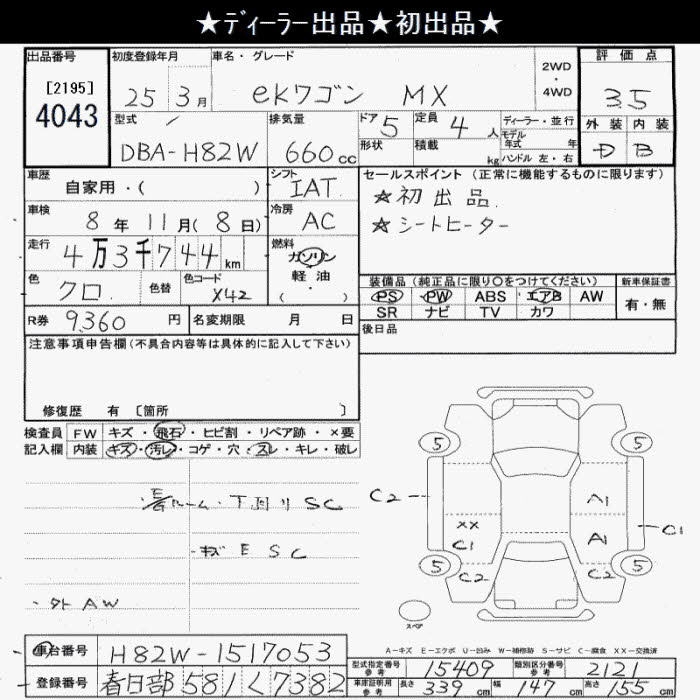 ★ディーラー出品★初出品★
出品番号
[2195]
4043
初度登録年月
25 3月
車名・グレード
ekワゴン MX
2WD
・
4WD
評価点
3.5
型式
DBA-H82W
排気量
660cc
ドア 5
定員 4人
形状
積載 kg
ディーラー・並行
モデル年式 年
ハンドル 左・右
外装 内装
D B
車歴
自家用・( )
シフト
IAT
セールスポイント (正常に機能するものに限ります)
★初出品.
★シートヒーター
車検
8年 11月(8日)
冷房
AC
走行
4万3千744km
燃料
ガソリン
軽油
( )
色
クロ
色替
色コード
X42
装備品 (純正品に限り○をつけてください)
PS PW ABS エアB AW
SR ナビ TV カワ
新車保証書
有・無
R券 9,360円
名変期限 月 日
後日品
注意事項申告欄(不具合内容等は具体的に記入して下さい)
修復歴 有 [箇所 ]
検査員 FW キズ・飛石・ヒビ割・リペア跡・×要
記入欄 内装 キズ・汚レ・コゲ・穴・スレ・キレ・破レ
ルーム・下回りSC
・キズ E SC
・タト AW
5
5
C2
A1
C1
XX
C1
A1
5
5
C2
C2
スペア
A-キズ E-エクボ U-凹み W-補修跡 S-サビ C-腐食 XX-交換済
車台番号 H82W-1517053
登録番号 春日部 581 く 7382
型式指定番号 参考 15409
類別区分番号 参考 2121
車庫証明用 参考 長さ 339cm 幅 147cm 高さ 155cm